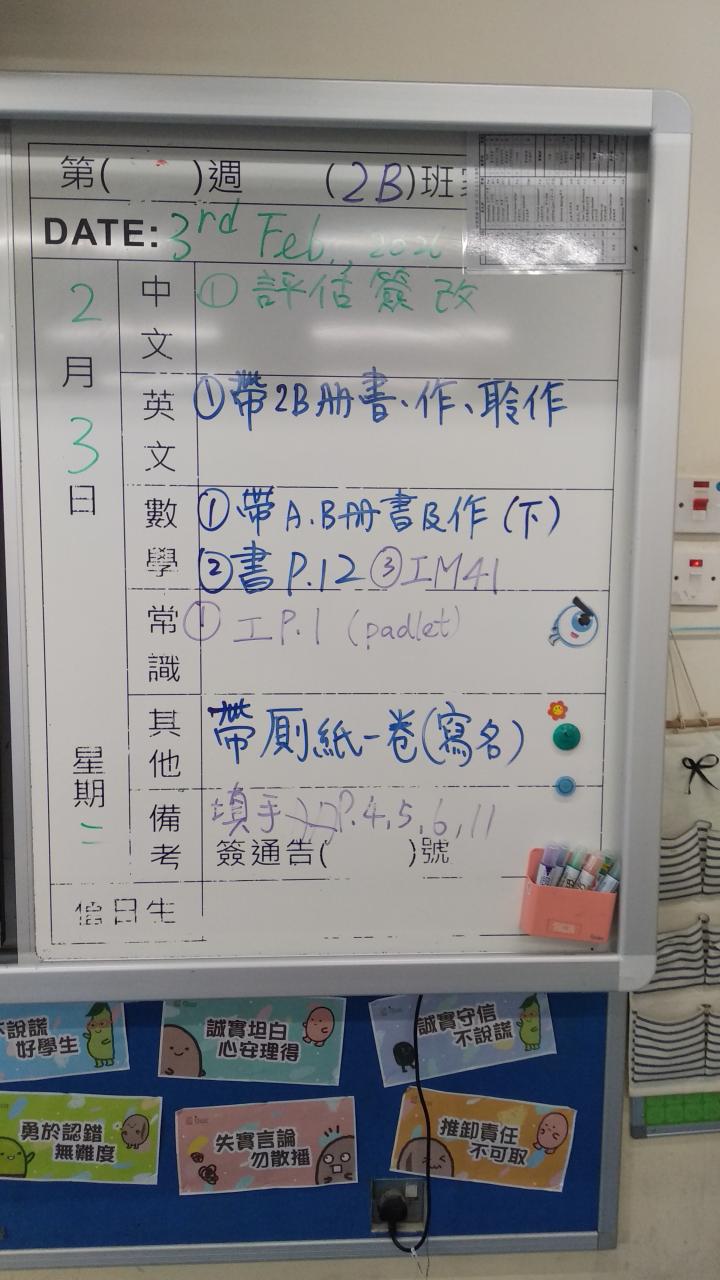 第( )週 (2B)班
DATE: 3rd Feb., 2026
2月3日
星期二
中文
① 評估簽改
英文
① 帶2B册書、作、聆作
數學
① 帶A.B册書及作(下)
② 書P.12 ③ 工M41
常識
① 工P.1 (padlet)
其他
帶厠紙一卷(寫名)
備考
填手冊P.4,5,6,11
簽通告( )號
值日生
不說謊
好學生
誠實坦白
心安理得
誠實守信
不說謊
勇於認錯
無難度
失實言論
勿散播
推卸責任
不可取